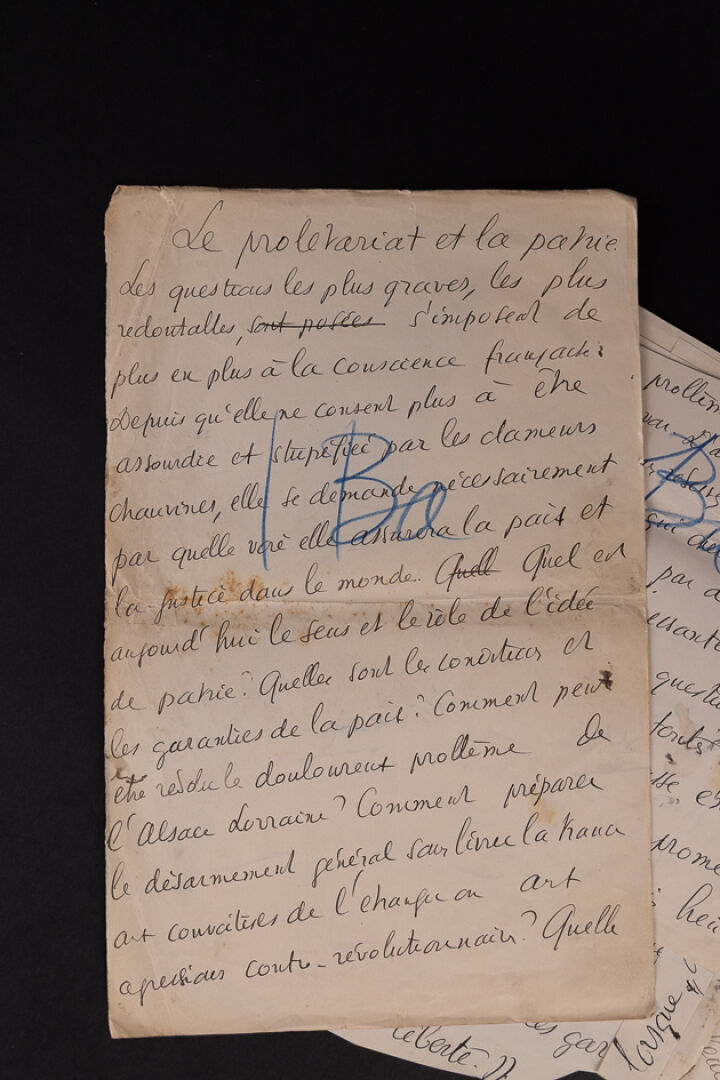 Le prolétariat et la patrie.
Les questions les plus graves, les plus
redoutables, sont posées s'imposent de
plus en plus à la conscience française.
Depuis qu'elle ne consent plus à être
assourdie et stupéfiée par les clameurs
chauvines, elle se demande nécessairement
par quelle voie elle assurera la paix et
la justice dans le monde. Quell Quel est
aujourd'hui le sens et le rôle de l'idée
de patrie? Quelles sont les conditions et
les garanties de la paix? Comment peut
être résolu le douloureux problème de
l'Alsace Lorraine? Comment préparer
le désarmement général sans livrer la France
aux convoitises de l'étranger ou aux
agressions contre-révolutionnaires? Quelle
Ba
problèm
par d
essante
questi
toute
sse es
prome
liberté.
es gar
lorsque